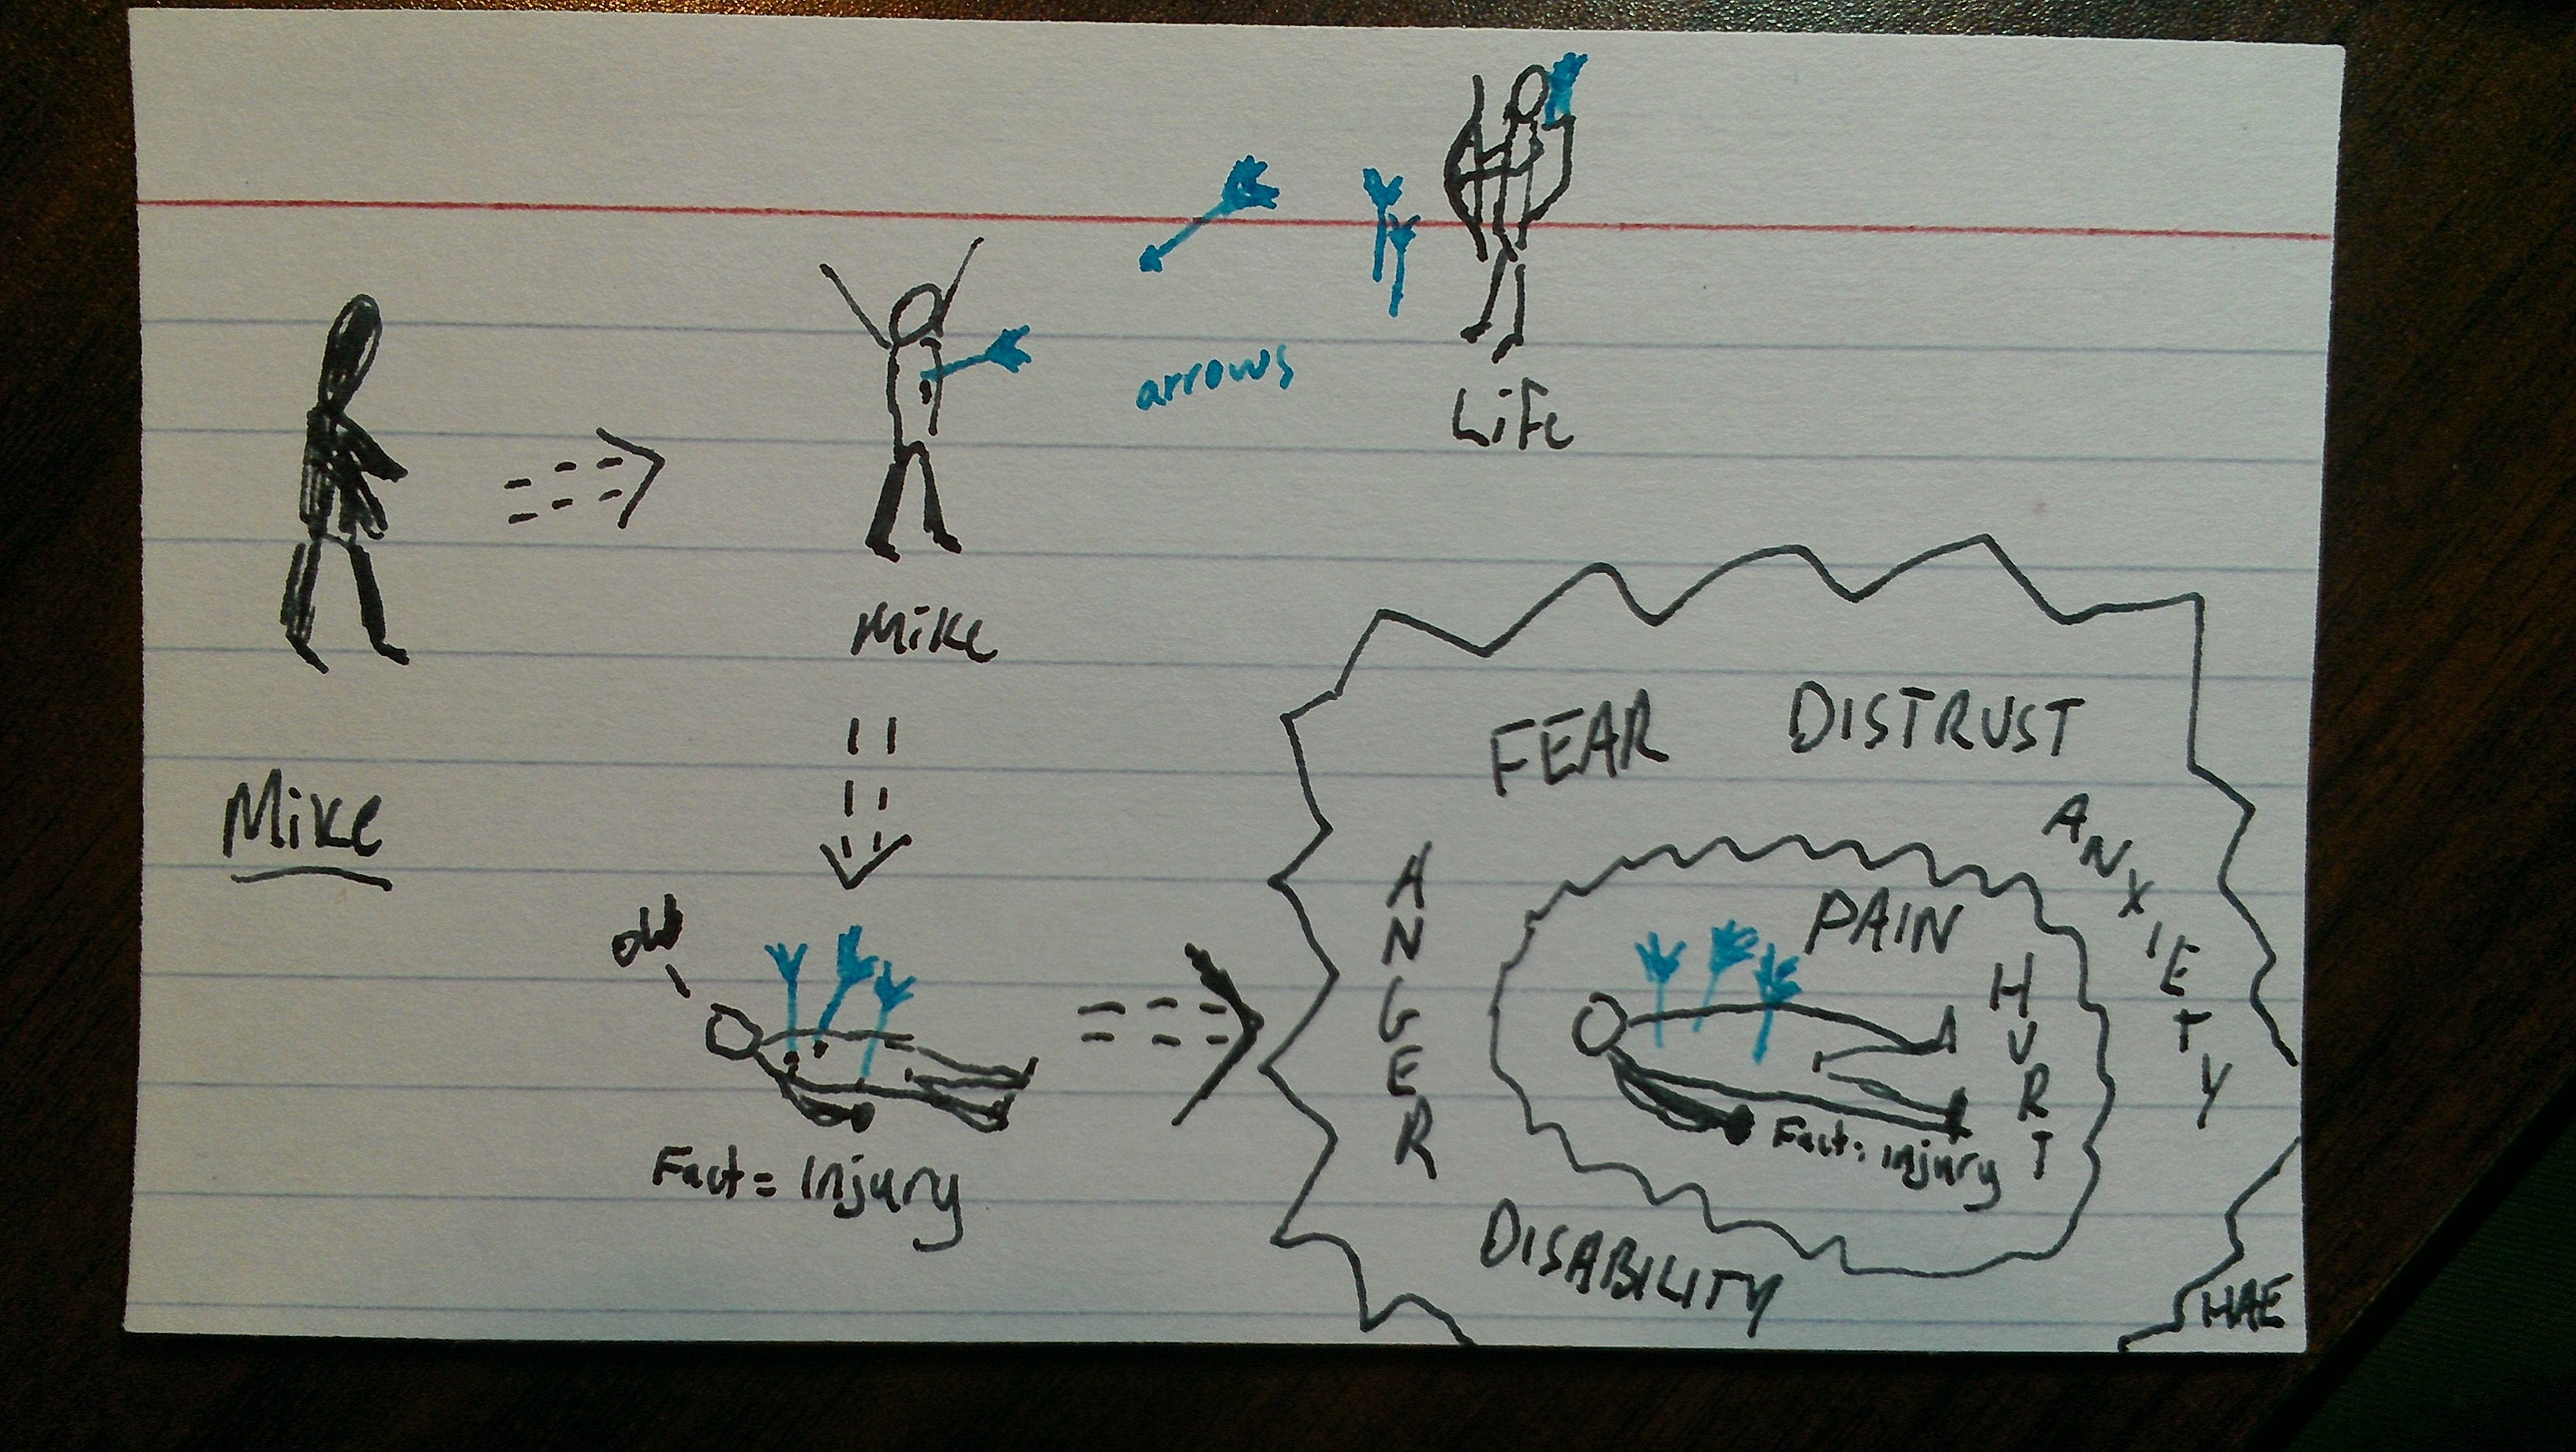 arrows
Life
Mike
Mike
OW
Fact = Injury
FEAR DISTRUST
ANXIETY
ANGER
PAIN
HURT
Fact: injury
DISABILITY
HAE